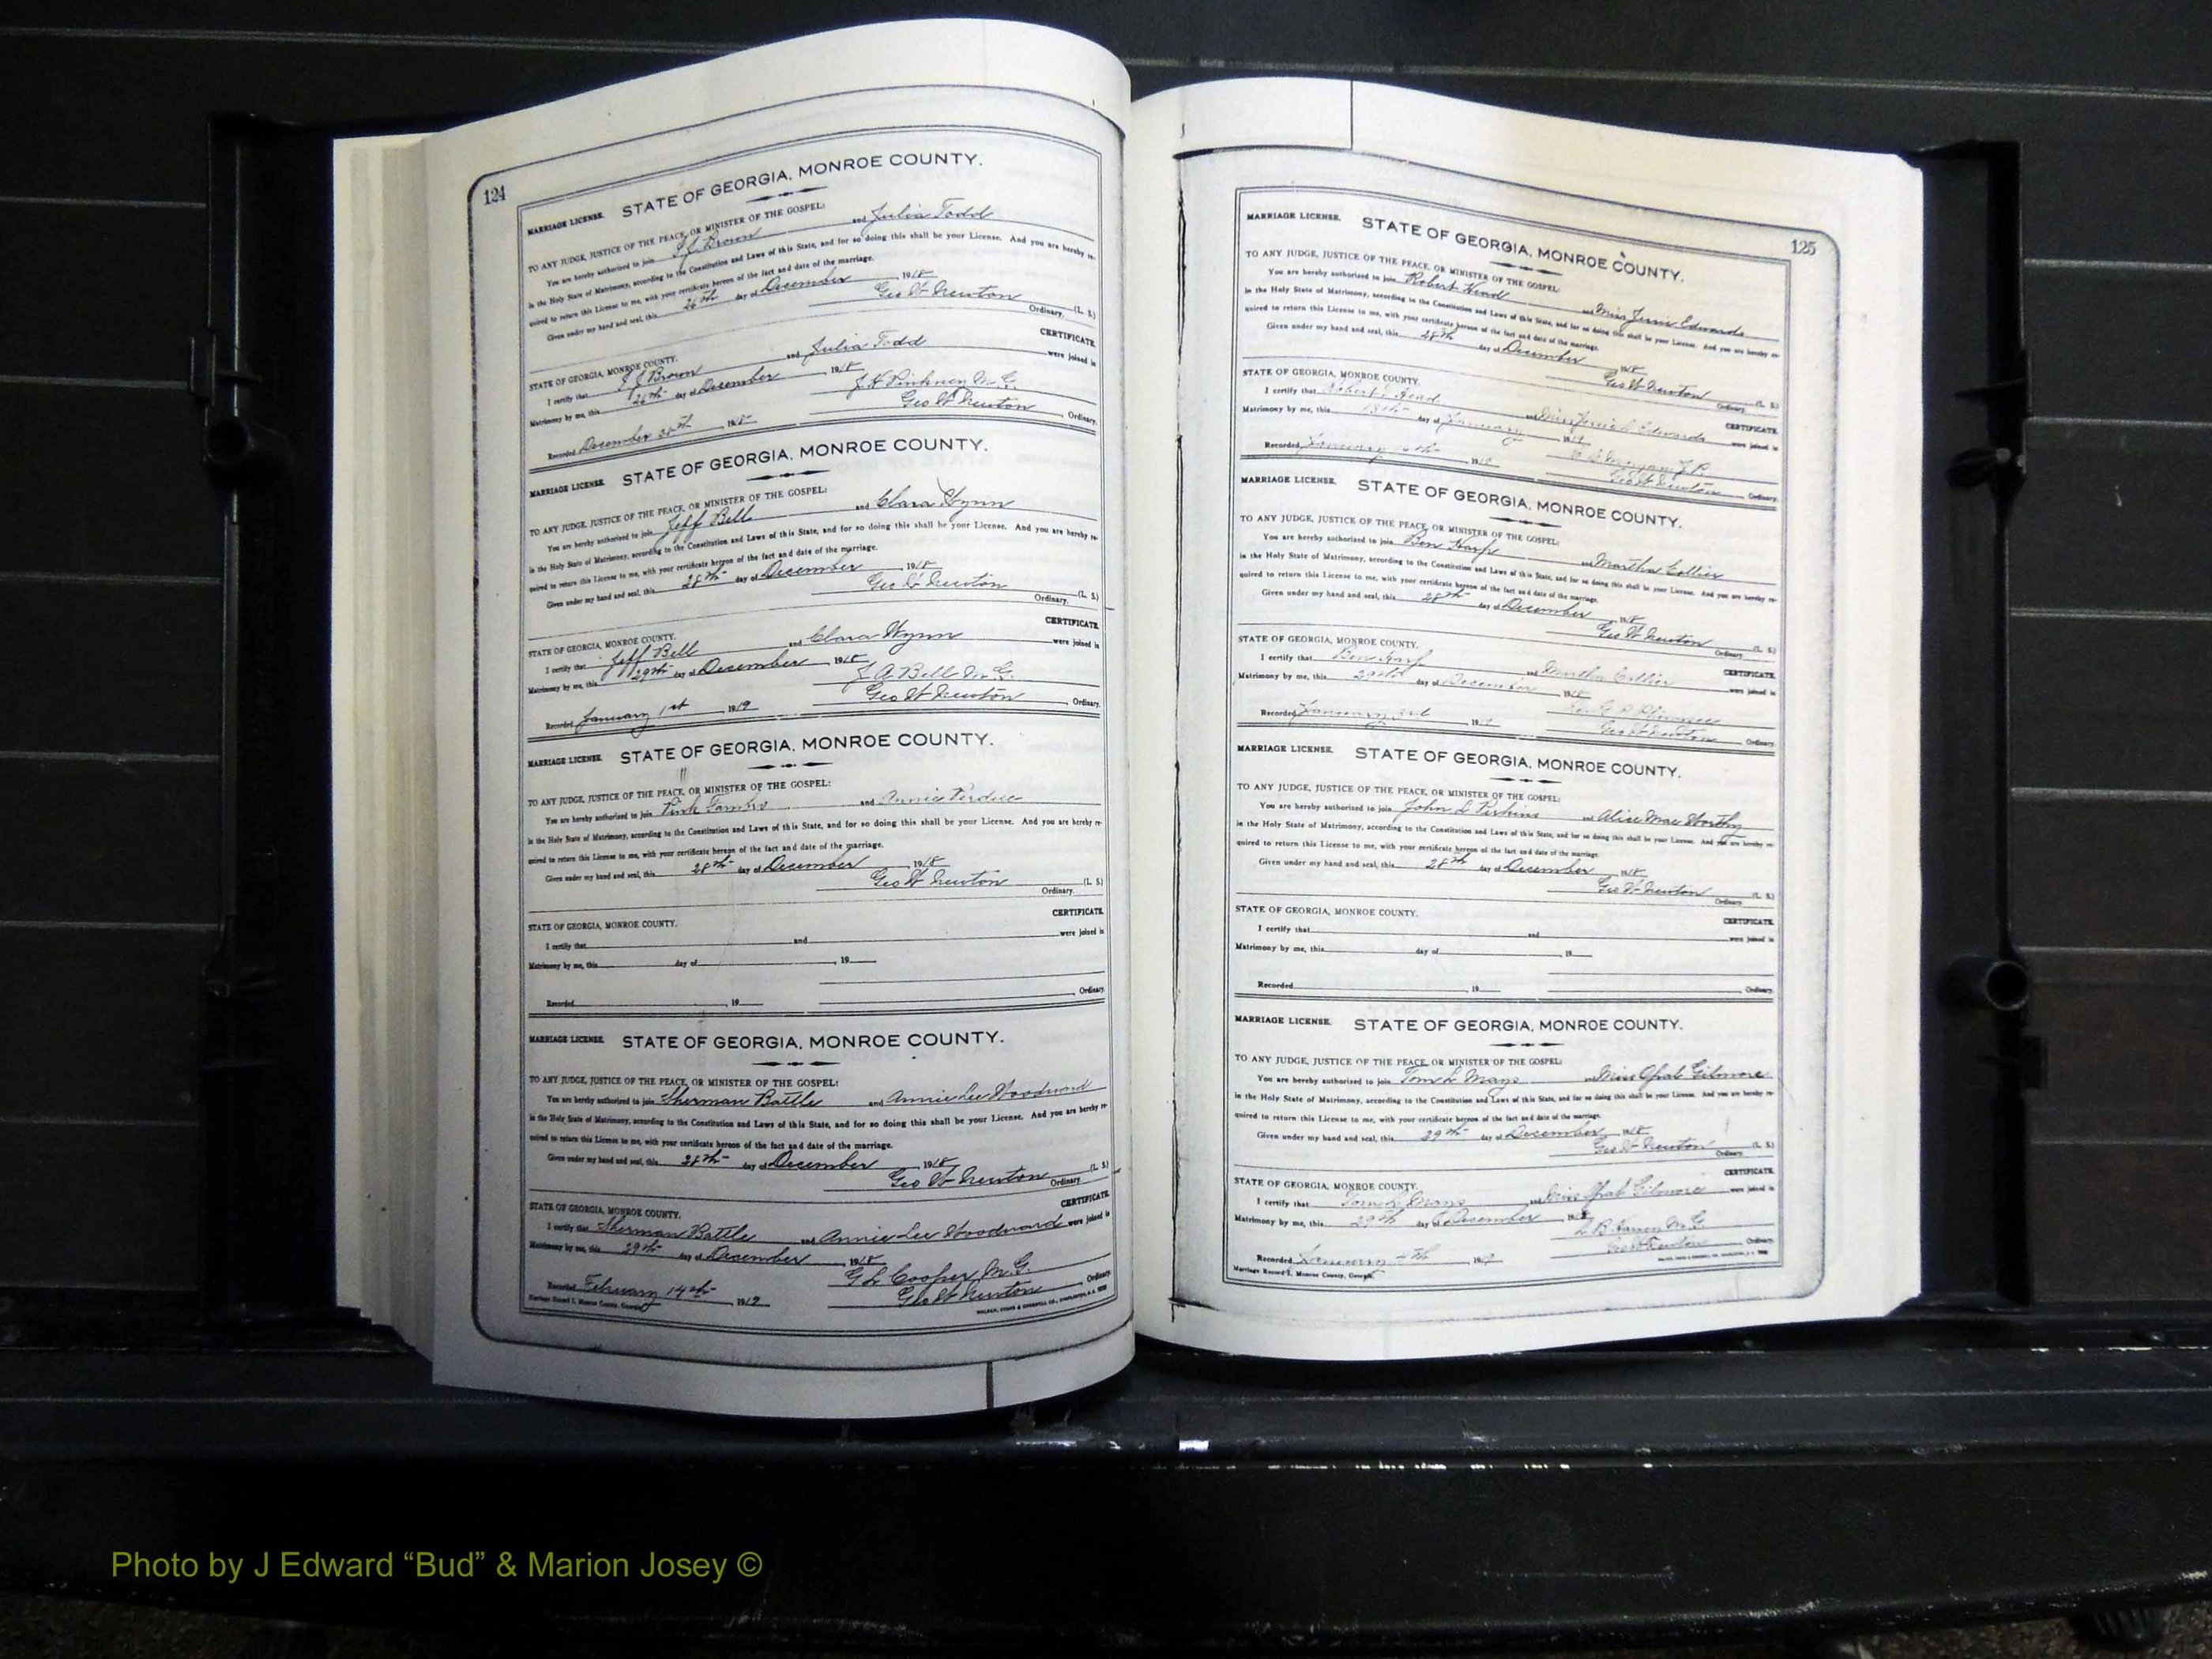 124
MARRIAGE LICENSE. STATE OF GEORGIA, MONROE COUNTY.
TO ANY JUDGE, JUSTICE OF THE PEACE, OR MINISTER OF THE GOSPEL:
You are hereby authorized to join J J Brown and Julia Todd
in the Holy State of Matrimony, according to the Constitution and Laws of this State, and for so doing this shall be your License. And you are hereby re-
quired to return this License to me, with your certificate hereon of the fact and date of the marriage.
Given under my hand and seal, this 26th day of December, 1918
Geo W Newton (L. S.)
Ordinary.
CERTIFICATE.
STATE OF GEORGIA, MONROE COUNTY.
I certify that J J Brown and Julia Todd were joined in
Matrimony by me, this 26th day of December 1918
J H Pinkney M.G.
Recorded December 30th 1918 Geo W Newton, Ordinary.
MARRIAGE LICENSE. STATE OF GEORGIA, MONROE COUNTY.
TO ANY JUDGE, JUSTICE OF THE PEACE, OR MINISTER OF THE GOSPEL:
You are hereby authorized to join Jeff Bell and Clara Wynn
in the Holy State of Matrimony, according to the Constitution and Laws of this State, and for so doing this shall be your License. And you are hereby re-
quired to return this License to me, with your certificate hereon of the fact and date of the marriage.
Given under my hand and seal, this 28th day of December, 1918
Geo W Newton (L. S.)
Ordinary.
CERTIFICATE.
STATE OF GEORGIA, MONROE COUNTY.
I certify that Jeff Bell and Clara Wynn were joined in
Matrimony by me, this 29th day of December, 1918
J A Bell M.G.
Recorded January 1st 1919 Geo W Newton, Ordinary.
MARRIAGE LICENSE. STATE OF GEORGIA, MONROE COUNTY.
TO ANY JUDGE, JUSTICE OF THE PEACE, OR MINISTER OF THE GOSPEL:
You are hereby authorized to join Pink and Annie Perdue
in the Holy State of Matrimony, according to the Constitution and Laws of this State, and for so doing this shall be your License. And you are hereby re-
quired to return this License to me, with your certificate hereon of the fact and date of the marriage.
Given under my hand and seal, this 28th day of December, 1918
Geo W Newton (L. S.)
Ordinary.
CERTIFICATE.
STATE OF GEORGIA, MONROE COUNTY.
I certify that and were joined in
Matrimony by me, this day of , 19
Recorded , 19 , Ordinary.
MARRIAGE LICENSE. STATE OF GEORGIA, MONROE COUNTY.
TO ANY JUDGE, JUSTICE OF THE PEACE, OR MINISTER OF THE GOSPEL:
You are hereby authorized to join Sherman Battle and Annie Lee Woodward
in the Holy State of Matrimony, according to the Constitution and Laws of this State, and for so doing this shall be your License. And you are hereby re-
quired to return this License to me, with your certificate hereon of the fact and date of the marriage.
Given under my hand and seal, this 28th day of December, 1918
Geo W Newton (L. S.)
Ordinary.
CERTIFICATE.
STATE OF GEORGIA, MONROE COUNTY.
I certify that Sherman Battle and Annie Lee Woodward were joined in
Matrimony by me, this 29th day of December, 1918
G L Cooper M.G.
Recorded February 14th 1919 Geo W Newton Ordinary.
Marriage Record I, Monroe County, Georgia
125
MARRIAGE LICENSE. STATE OF GEORGIA, MONROE COUNTY.
TO ANY JUDGE, JUSTICE OF THE PEACE, OR MINISTER OF THE GOSPEL:
You are hereby authorized to join Robert Head and Miss Edwards
in the Holy State of Matrimony, according to the Constitution and Laws of this State, and for so doing this shall be your License. And you are hereby re-
quired to return this License to me, with your certificate hereon of the fact and date of the marriage.
Given under my hand and seal, this 28th day of December 1918
Geo W Newton (L. S.)
Ordinary.
STATE OF GEORGIA, MONROE COUNTY. CERTIFICATE.
I certify that Robert Head and Miss Edwards were joined in
Matrimony by me, this day of January 1919
Recorded January 1919 Geo W Newton Ordinary.
MARRIAGE LICENSE. STATE OF GEORGIA, MONROE COUNTY.
TO ANY JUDGE, JUSTICE OF THE PEACE, OR MINISTER OF THE GOSPEL:
You are hereby authorized to join Ben Harp and Martha Collier
in the Holy State of Matrimony, according to the Constitution and Laws of this State, and for so doing this shall be your License. And you are hereby re-
quired to return this License to me, with your certificate hereon of the fact and date of the marriage.
Given under my hand and seal, this 28th day of December 1918
Geo W Newton (L. S.)
Ordinary.
STATE OF GEORGIA, MONROE COUNTY. CERTIFICATE.
I certify that Ben Harp and Martha Collier were joined in
Matrimony by me, this 29th day of December 1918
Recorded January 1919 Geo W Newton Ordinary.
MARRIAGE LICENSE. STATE OF GEORGIA, MONROE COUNTY.
TO ANY JUDGE, JUSTICE OF THE PEACE, OR MINISTER OF THE GOSPEL:
You are hereby authorized to join John L Perkins and Alice Mae Worthy
in the Holy State of Matrimony, according to the Constitution and Laws of this State, and for so doing this shall be your License. And you are hereby re-
quired to return this License to me, with your certificate hereon of the fact and date of the marriage.
Given under my hand and seal, this 28th day of December, 1918
Geo W Newton (L. S.)
Ordinary.
STATE OF GEORGIA, MONROE COUNTY. CERTIFICATE.
I certify that and were joined in
Matrimony by me, this day of , 19
Recorded , 19 Ordinary.
MARRIAGE LICENSE. STATE OF GEORGIA, MONROE COUNTY.
TO ANY JUDGE, JUSTICE OF THE PEACE, OR MINISTER OF THE GOSPEL:
You are hereby authorized to join Tom L Mays and Miss Opal Gilmore
in the Holy State of Matrimony, according to the Constitution and Laws of this State, and for so doing this shall be your License. And you are hereby re-
quired to return this License to me, with your certificate hereon of the fact and date of the marriage.
Given under my hand and seal, this 29th day of December, 1918
Geo W Newton (L. S.)
Ordinary.
CERTIFICATE.
STATE OF GEORGIA, MONROE COUNTY.
I certify that Tom L Mays and Miss Opal Gilmore were joined in
Matrimony by me, this 29th day of December, 1918
M.G.
Recorded January 1919 Geo W Newton Ordinary.
Marriage Record I, Monroe County, Georgia
Photo by J Edward “Bud” & Marion Josey ©